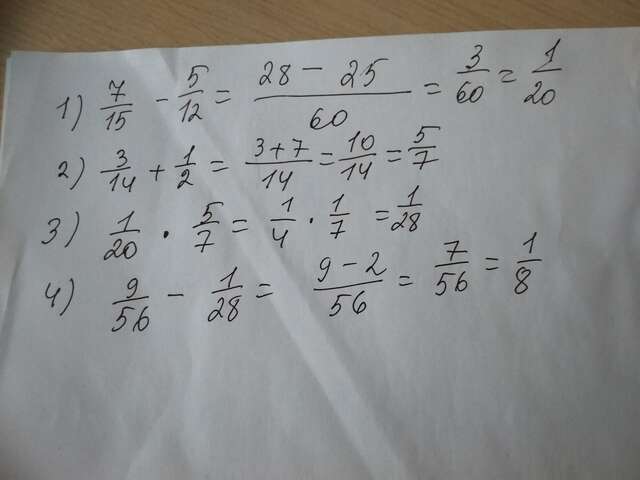 1) 7/15 - 5/12 = (28 - 25)/60 = 3/60 = 1/20
2) 3/14 + 1/2 = (3+7)/14 = 10/14 = 5/7
3) 1/20 · 5/7 = 1/4 · 1/7 = 1/28
4) 9/56 - 1/28 = (9-2)/56 = 7/56 = 1/8